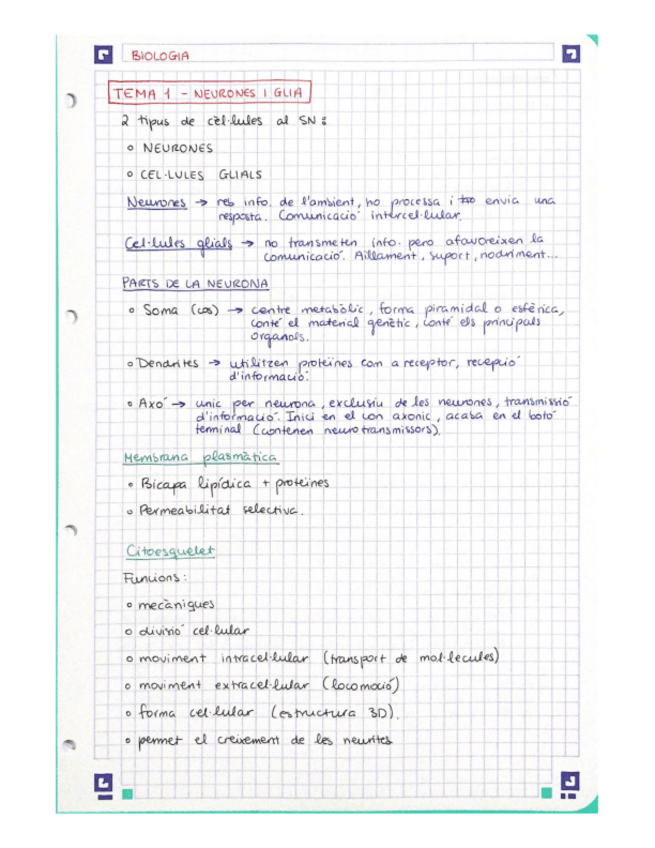 BIOLOGIA
TEMA 1 - NEURONES I GLIA
2 tipus de cèl·lules al SN:
∘ NEURONES
∘ CEL·LULES GLIALS
Neurones → reb info. de l'ambient, ho processa i envia una
resposta. Comunicació intercel·lular.
Cel·lules glials → no transmeten info. pero afavoreixen la
comunicació. Aïllament, suport, nodriment...
PARTS DE LA NEURONA
∘ Soma (cos) → centre metabòlic, forma piramidal o esfèrica,
conté el material genètic, conté els principals
organols.
∘ Dendrites → utilitzen proteïnes com a receptor, recepció
d'informació.
∘ Axó → unic per neurona, exclusiu de les neurones, transmissió
d'informació. Inici en el con axonic, acaba en el botó
terminal (contenen neurotransmissors).
Membrana plasmàtica
∘ Bicapa lipídica + proteïnes
∘ Permeabilitat selectiva.
Citoesquelet
Funcions:
∘ mecàniques
∘ divisió cel·lular
∘ moviment intracel·lular (transport de mol·lecules)
∘ moviment extracel·lular (locomoció)
∘ forma cel·lular (estructura 3D).
∘ permet el creixement de les neurites